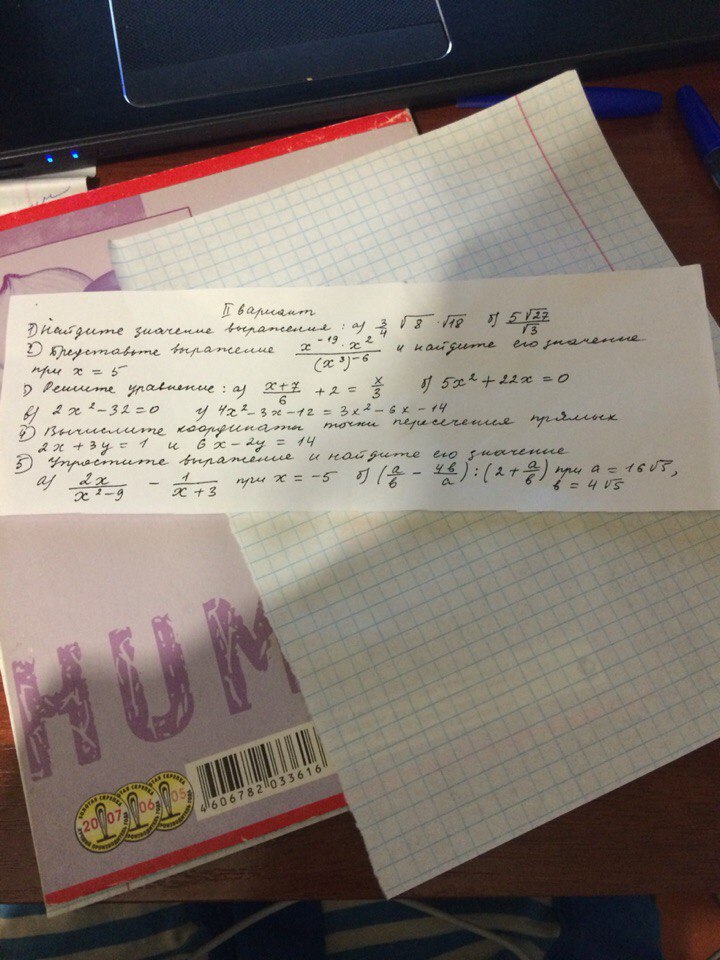 II вариант
1) Найдите значение выражения: а) 3/4 √8 · √18 б) 5√27/√3
2) Представьте выражение x^-19 · x^2/(x^3)^-6 и найдите его значение
при x = 5
3) Решите уравнение: а) x+7/6 + 2 = x/3 б) 5x² + 22x = 0
в) 2x² - 32 = 0 г) 4x² - 3x - 12 = 3x² - 6x - 14
4) Вычислите координаты точки пересечения прямых
2x + 3y = 1 и 6x - 2y = 14
5) Упростите выражение и найдите его значение
а) 2x/x²-9 - 1/x+3 при x = -5 б) (a/b - 4b/a) : (2 + a/b) при a = 16√5,
b = 4√5
HUM
4 606782 033616
ЗОЛОТАЯ СКРЕПКА
2007
06
05